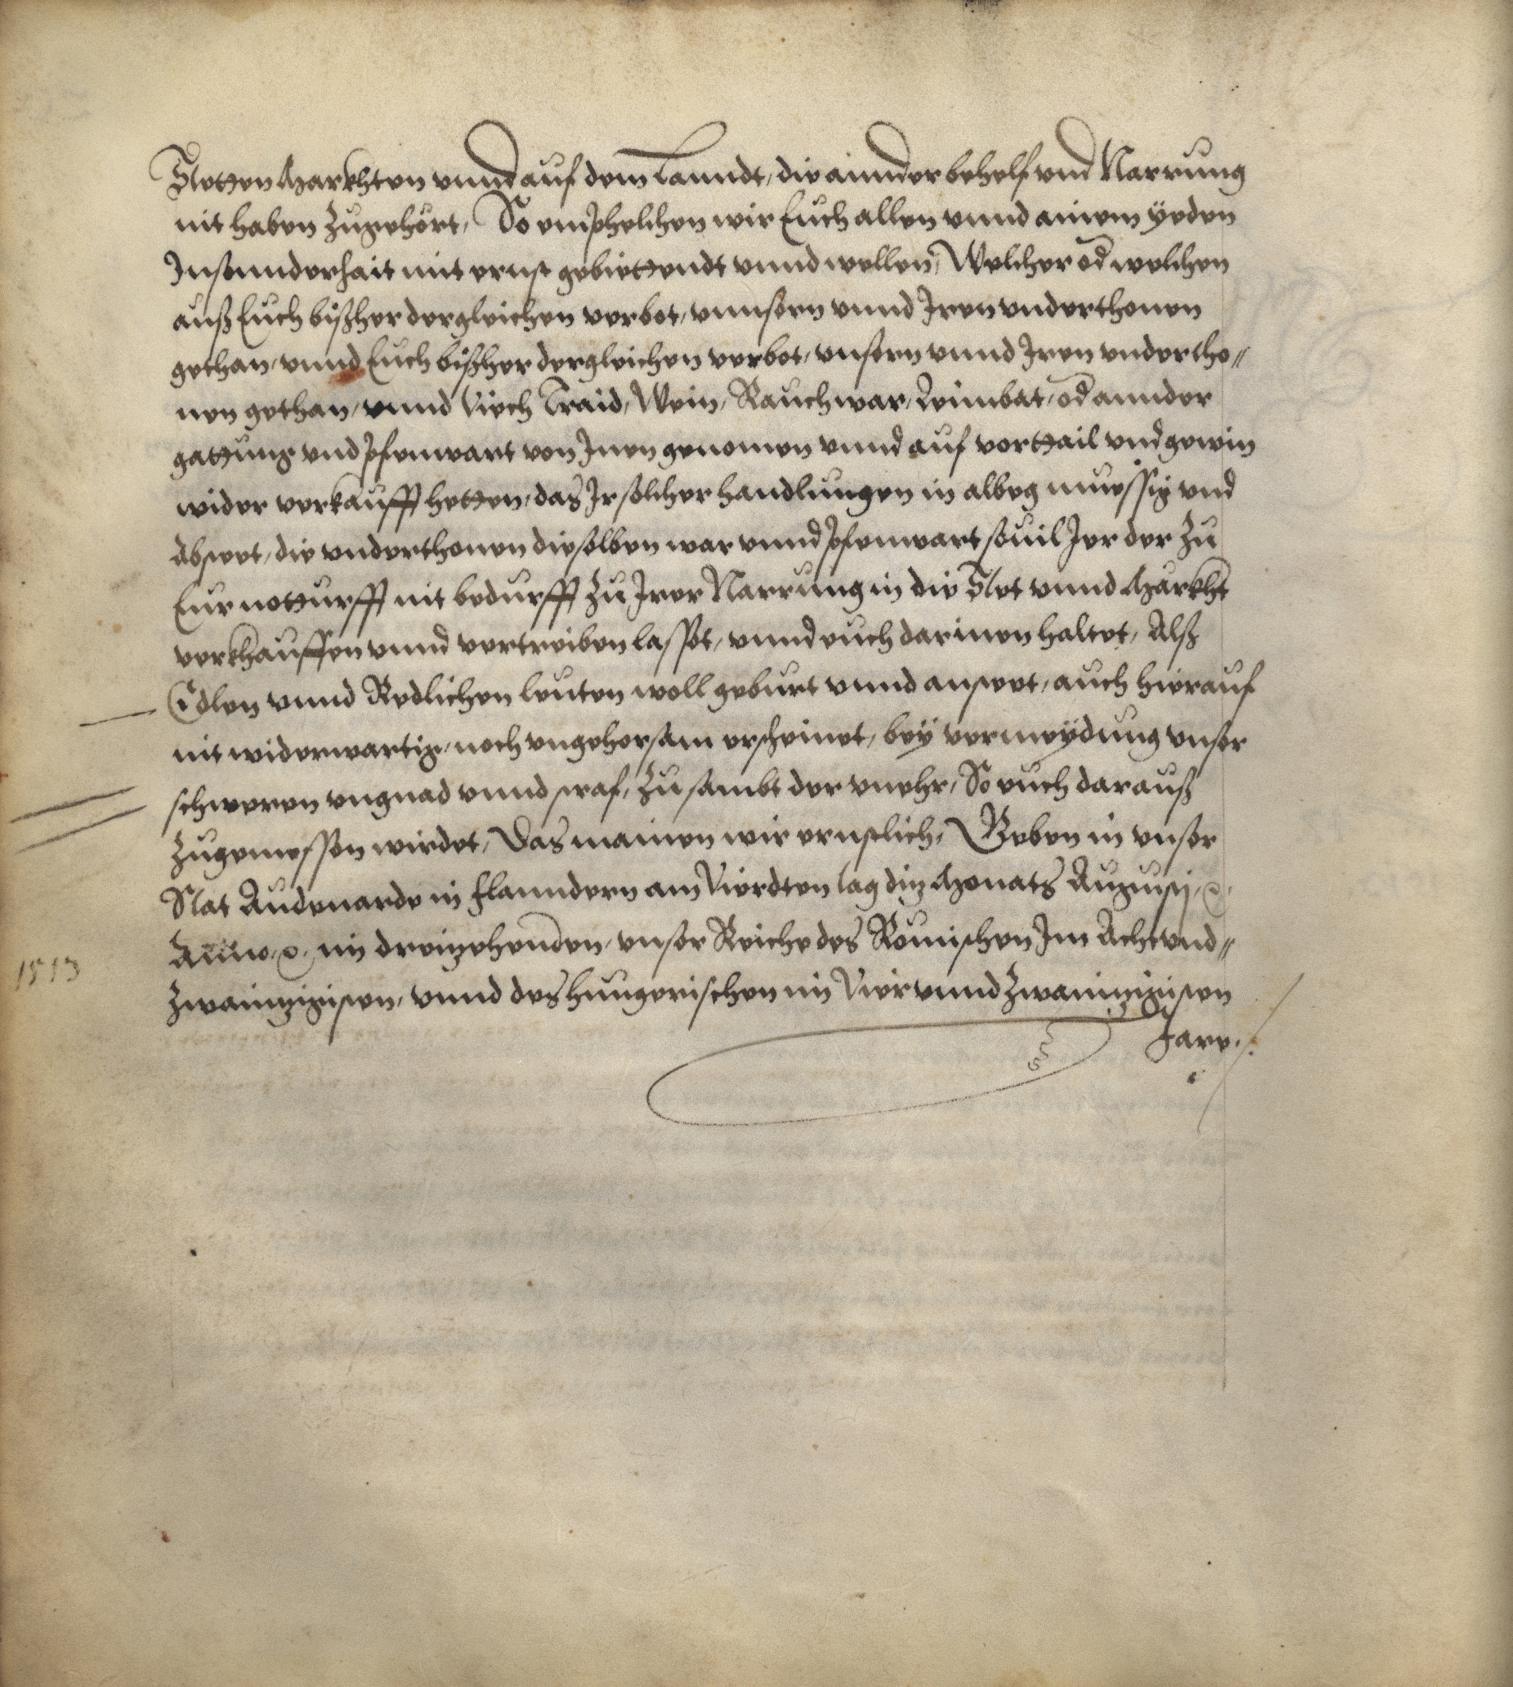 Stetten Marckhten vnnd auf dem Lanndt, die annder behelf vnd Narrung
nit haben Zugehört, So emphelchen wir Euch allen vnnd ainem yeden
Insonnderhait mit ernst gebiettendt vnnd wellen, Welcher od welchen
auß Euch bißher dergleichen verbot, vnnsern vnnd Iren vnderthonen
gethan, vnnd Euch bißher dergleichen verbot, vnsern vnnd Iren vndertho„
nen gethan, vnnd Viech Traid, Wein, Rauchwar, Leimbat, od annder
gattung vnd pfenwart von Inen genomen vnnd auf vorttail vnd gewin
wider verkaufft hetten, das Ir solcher handlungen in albeg muessig vnd
absteet, die vnderthonen dieselben war vnnd pfenwart souil Ier der Zu
Eur notturfft nit bedurfft Zu Irer Narrung in die Stet vnnd Märckht
verkhauffen vnnd vertreiben lasset, vnnd euch darinnen haltet, Alß
Edlen vnnd Redlichen leuten woll geburt vnnd ansteet, auch hierauf
nit widerwartig, noch vngehorsam erscheinet, bey vermeydung vnser
schweren vngnad vnnd straf, Zu sambt der vnehr, So euch darauß
Zugemessen wirdet, Das mainen wir ernstlich, Geben in vnser
Stat Audenarde in Flanndern am Vierdten tag diz Monats Augustj, ꝛc.
Anno. ꝛc. im dreizehenden, vnser Reiche des Römischen Im Achtvnd„
Zwainzigisten, vnnd des hungerischen im Vier vnnd Zwainzigisten
Jare.
1513